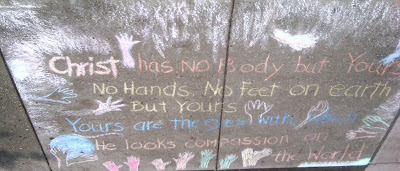 Christ has No Body but Yours
No Hands, No Feet on earth
But Yours
Yours are the eyes with which
He looks compassion on
the World